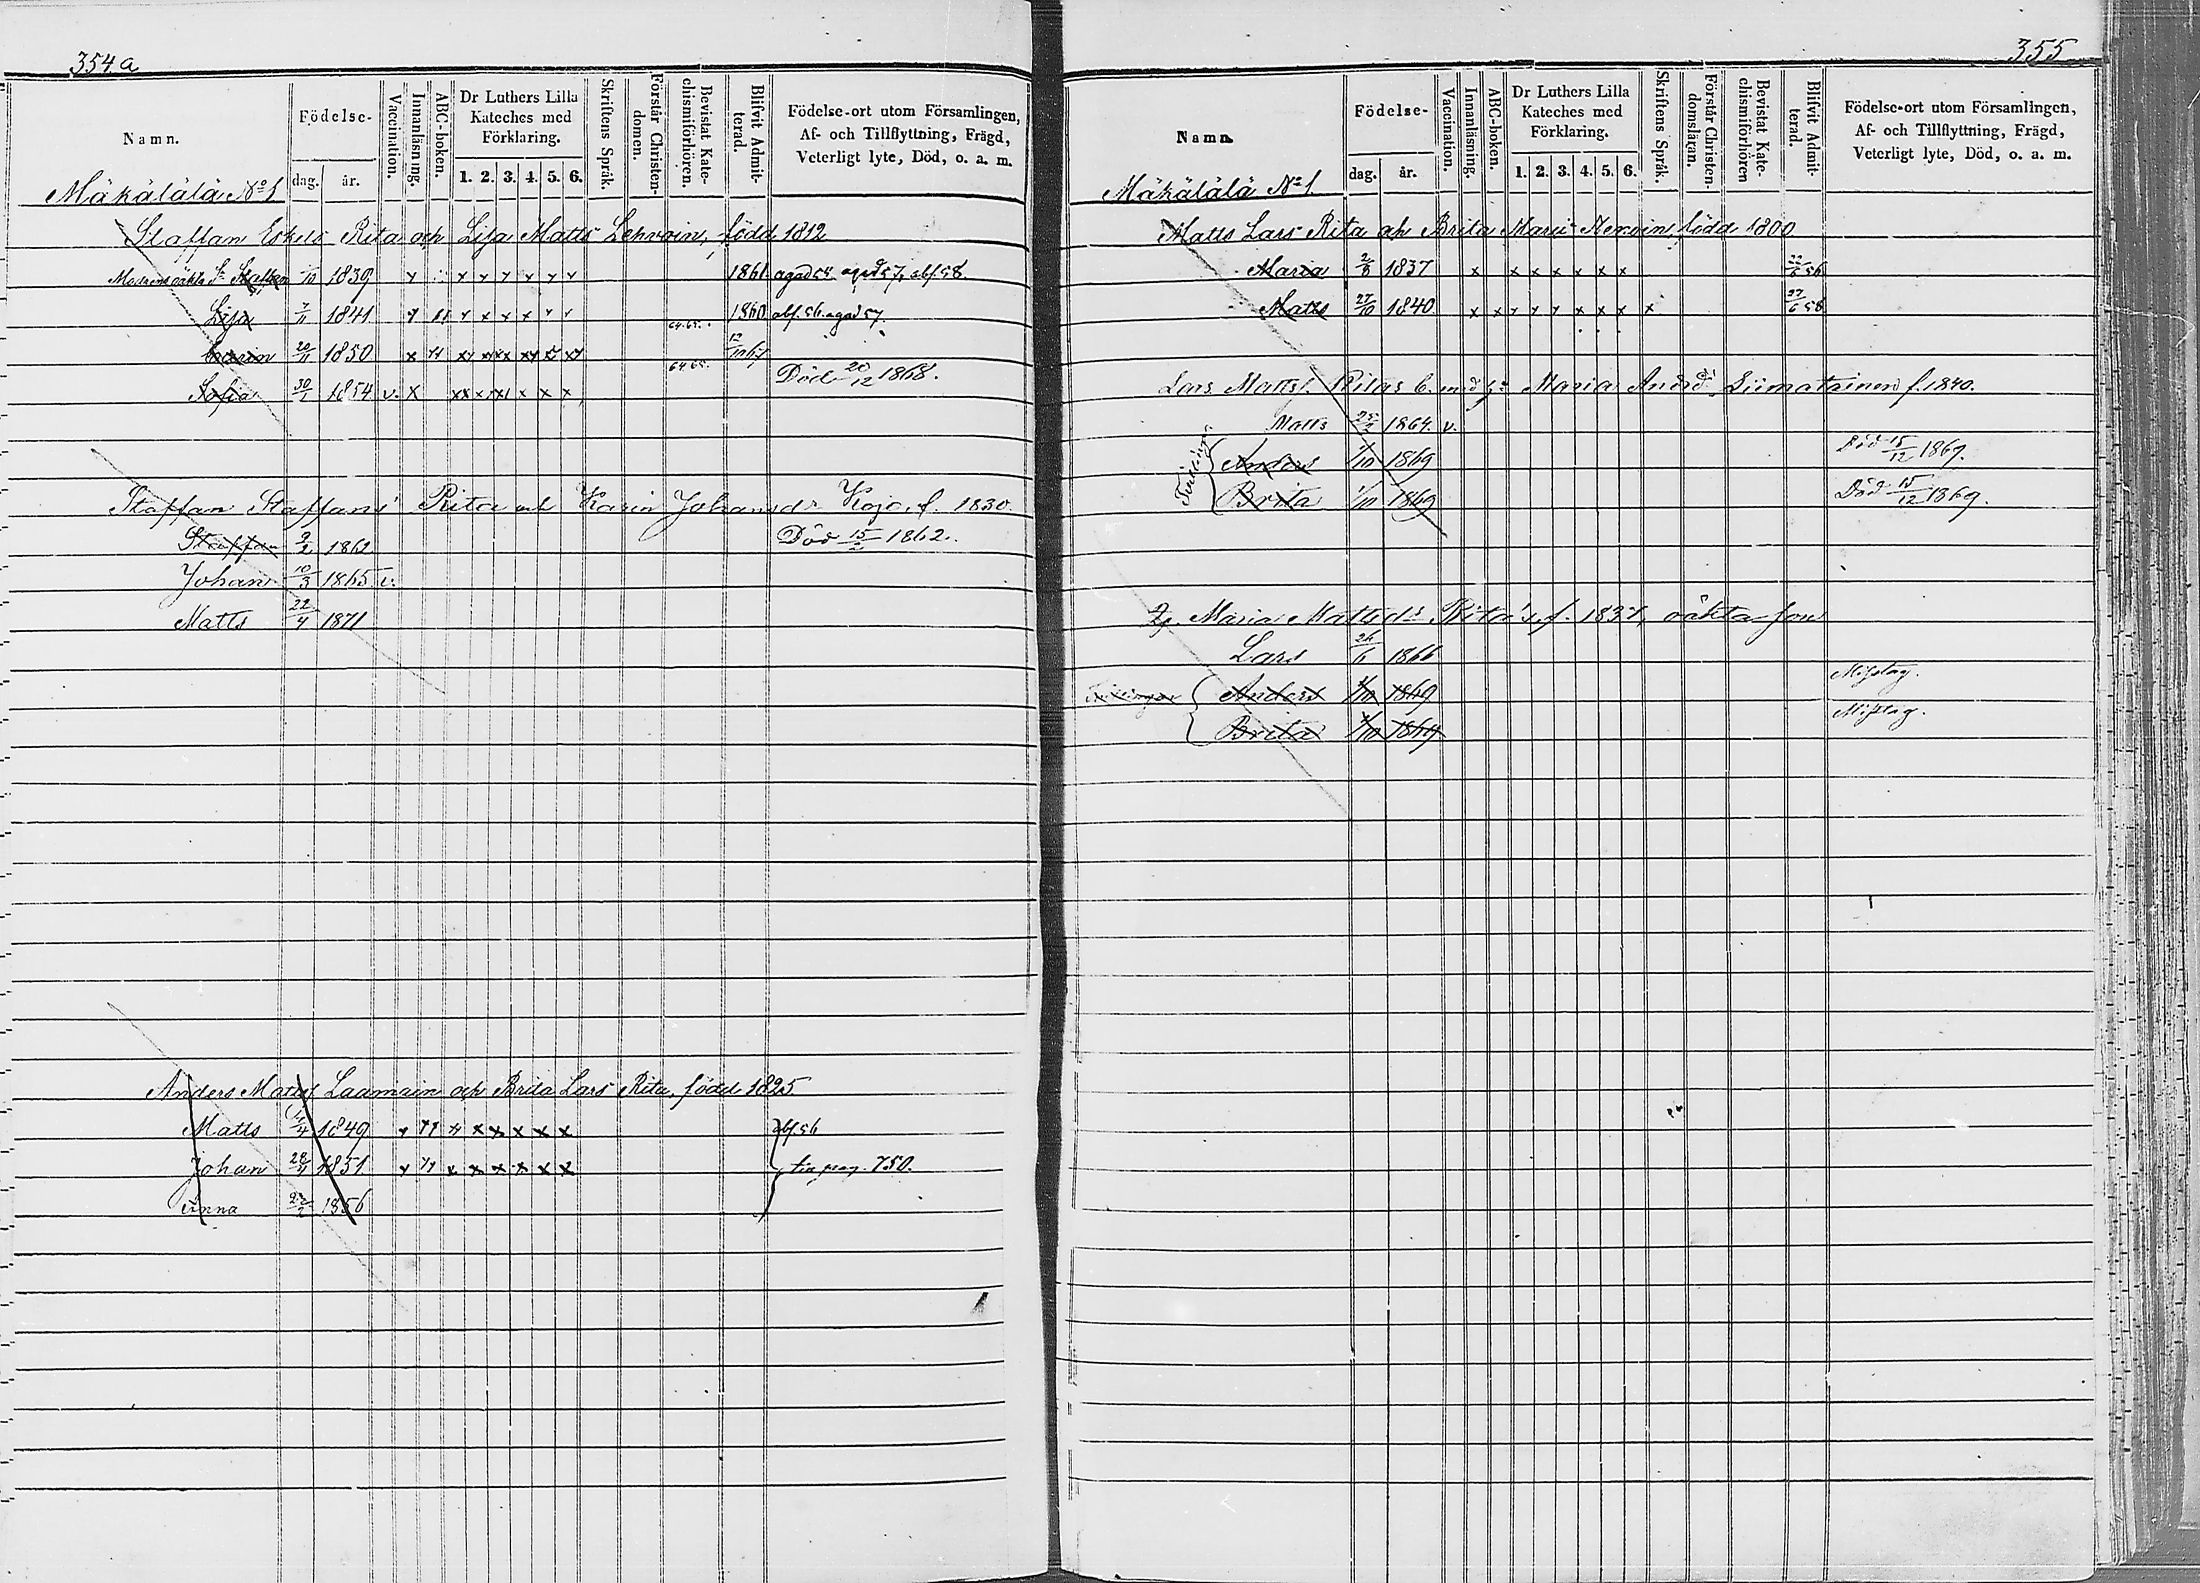 354 a
Namn.
Födelse-
dag.
år.
Vaccination.
Innanläsning.
ABC-boken.
Dr Luthers Lilla
Kateches med
Förklaring.
1. 2. 3. 4. 5. 6.
Skriftens Språk.
Förstår Christen-
domen.
Bevistat Kate-
chismiförhören.
Blifvit Admit-
terad.
Födelse-ort utom Församlingen,
Af- och Tillflyttning, Frägd,
Veterligt lyte, Död, o. a. m.
Mäkälälä No 1
Staffan Rita och Lisa Matts född 1812
Staffan 1839 x x x x x x x 1861
Lisa 7/11 1841 x x x x x x 1860
64.65.
1850 x
64.65.
Sofia 30/1 1854 v. x x x x x x x Död 20/12 1868.
Staffan Staffans Rita och Karin Johansdr Kojo, f. 1830.
Staffan 9/2 1862 Död 15/2 1862.
Johan 10/3 1865 v.
Matts 22/4 1871
Anders Matts Laamain och Brita Lars Rita, född 1825
Matts 1849 x x x x x x abf 56
Johan 1851 x x x x x x pag. 750.
Anna 1856
355
Namn.
Födelse-
dag.
år.
Vaccination.
Innanläsning.
ABC-boken.
Dr Luthers Lilla
Kateches med
Förklaring.
1. 2. 3. 4. 5. 6.
Skriftens Språk.
Förstår Christen-
domsläran.
Bevistat Kate-
chismiförhören
Blifvit Admit-
terad.
Födelse-ort utom Församlingen,
Af- och Tillflyttning, Frägd,
Veterligt lyte, Död, o. a. m.
Mäkälälä No 1.
Matts Lars Rita och Brita född 1800
Maria 1837 x x x x x x x 22/6 56
Matts 27/10 1840 x x x x x x x x x 27/6 58
Lars Matts Ritas Maria Andrsdr Liimatainen f. 1840.
Matts 1864. v.
Tvillingar
Anders 1/10 1869 Död 15/12 1869.
Brita 1/10 1869 Död 15/12 1869.
Maria Mattsdr Rita's, f. 1837, oäkta son
Lars 26/6 1866
Tvillingar
Anders 1/10 1869 Misstag.
Brita 1/10 1869 Misstag.